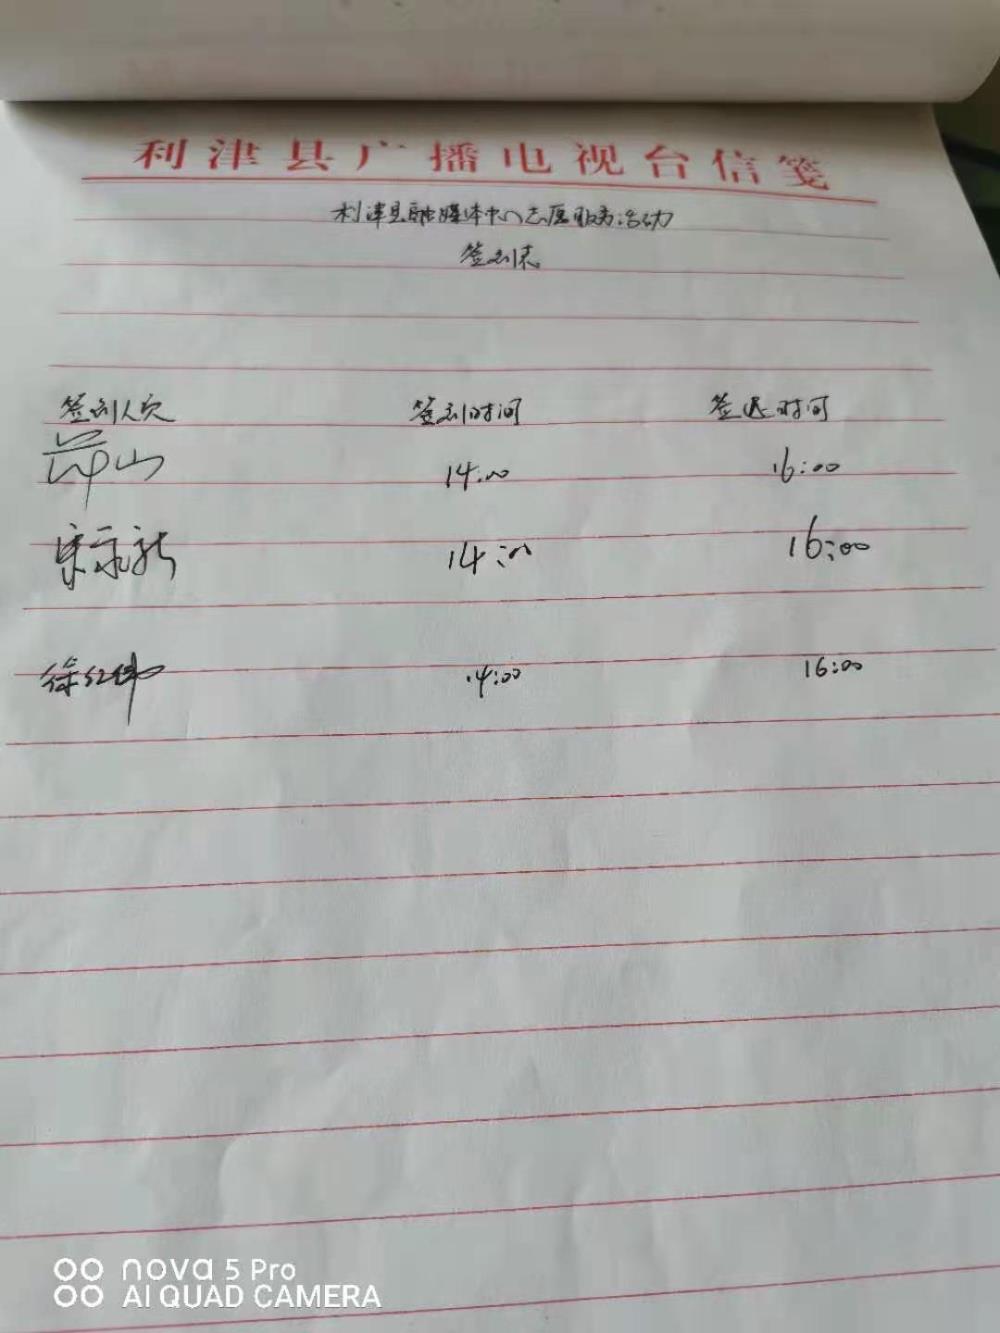 利津县广播电视台信笺
利津县融媒体中心志愿服务活动
签到表
签到人员 签到时间 签退时间
山 14:00 16:00
宋永新 14:00 16:00
徐红伟 14:00 16:00
nova 5 Pro
AI QUAD CAMERA